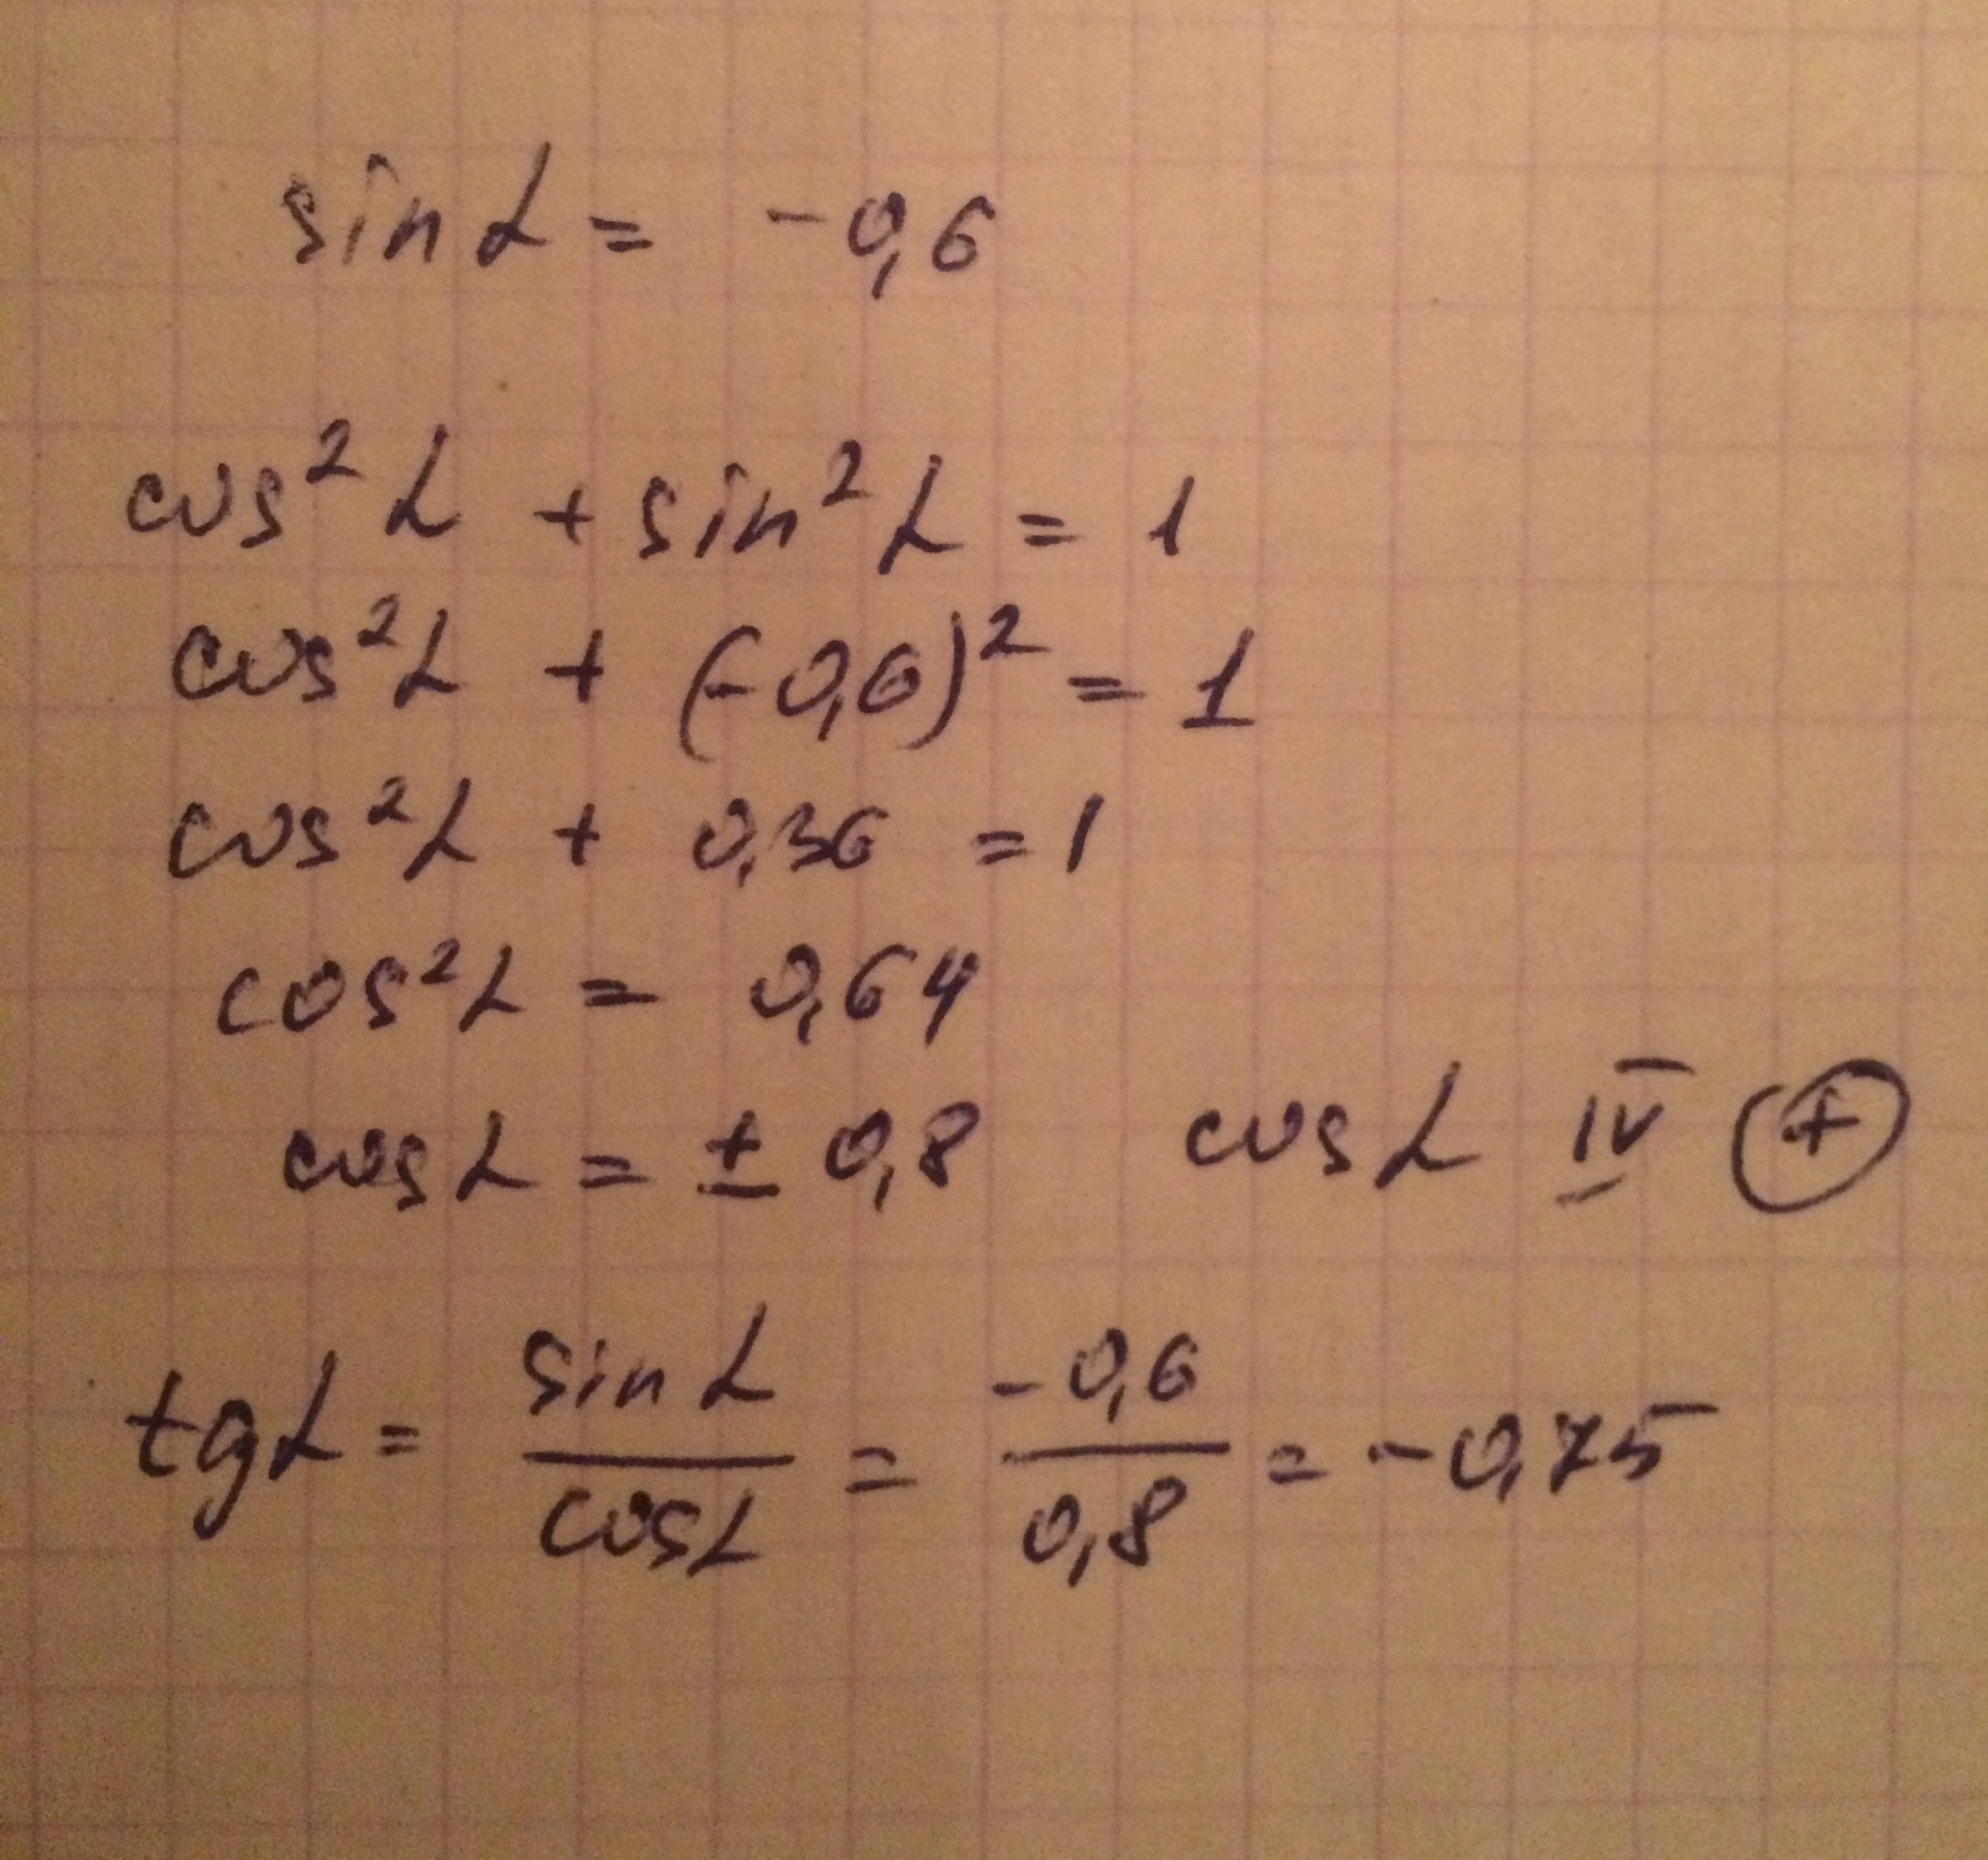 sin α = -0,6
cos² α + sin² α = 1
cos² α + (-0,6)² = 1
cos² α + 0,36 = 1
cos² α = 0,64
cos α = ± 0,8 cos α IV (+)
tg α = sin α / cos α = -0,6 / 0,8 = -0,75